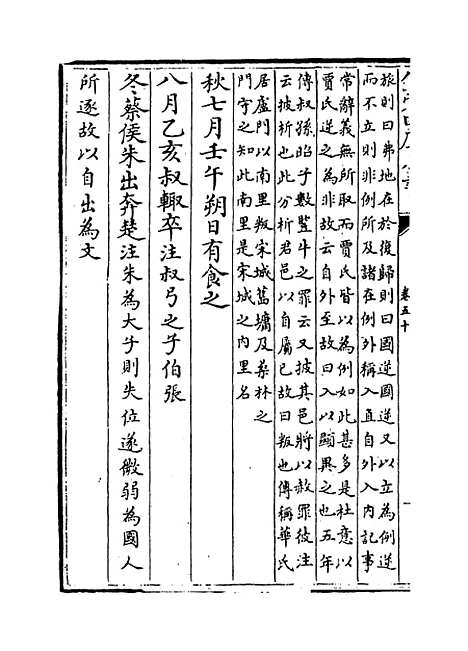 旅則曰弗地在於復歸則曰國逆國逆又以立為例逆
而不立則非例所及諸在例外稱入直自外入內記事
常辭義無所取而賈氏皆以為例如此甚多是杜意以
賈氏逆之為非故云自外至故曰入以顯異之也五年
傳叔孫昭子數豎牛之罪云又披其邑將以赦罪彼注
云披析也此分析君邑以自屬已故曰叛也傳稱華氏
居廬門以南里叛宋城舊墉及桑林之
門守之知此南里是宋城之內里名
秋七月壬午朔日有食之
八月乙亥叔輙卒注叔弓之子伯張
冬蔡侯朱出奔楚注朱為大子則失位遂微弱為國人
所逐故以自出為文
卷五十